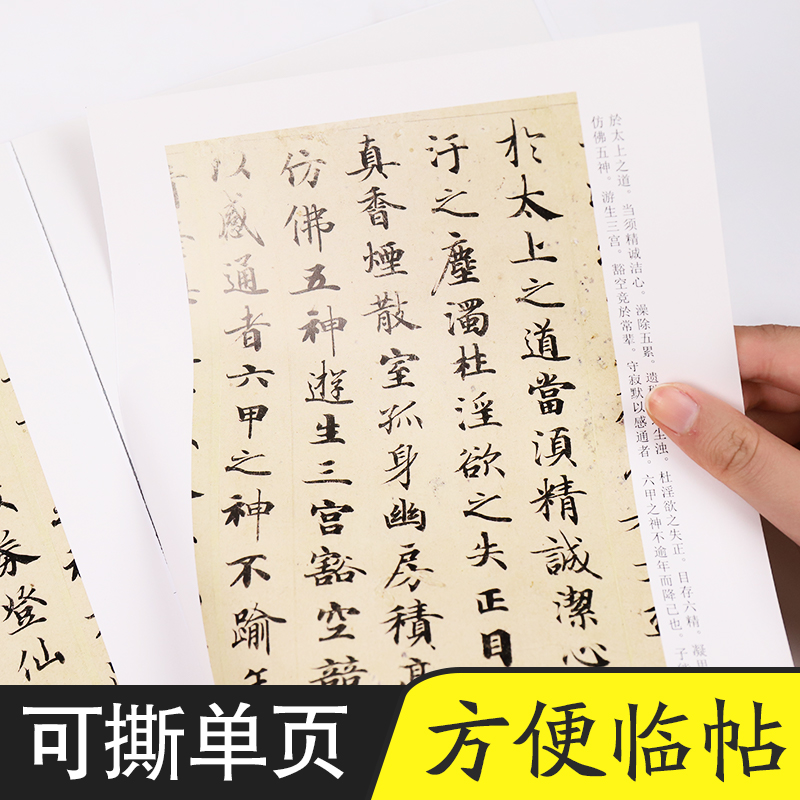 於太上之道。当须精诚洁心。澡除五累。遗尘浊。杜淫欲之失正。目存六精。凝
仿佛五神。游生三宫。豁空竞於常辈。守寂默以感通者。六甲之神不逾年而降已也。子
於太上之道當湏精誠潔心
汙之塵濁杜淫欲之失正目
真香煙散室孤身幽房積
仿佛五神遊生三宮豁空
以感通者六甲之神不踰
登仙
可撕单页
方便临帖